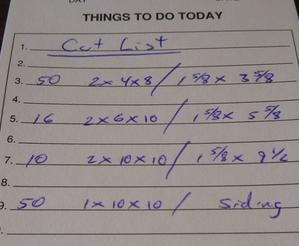 THINGS TO DO TODAY
1. Cut List
2.
3. 50 2x4x8 / 1 5/8 x 3 5/8
4.
5. 16 2x6x10 / 1 5/8 x 5 5/8
6.
7. 10 2x10x10 / 1 5/8 x 9 1/2
8.
9. 50 1x10x10 / Siding